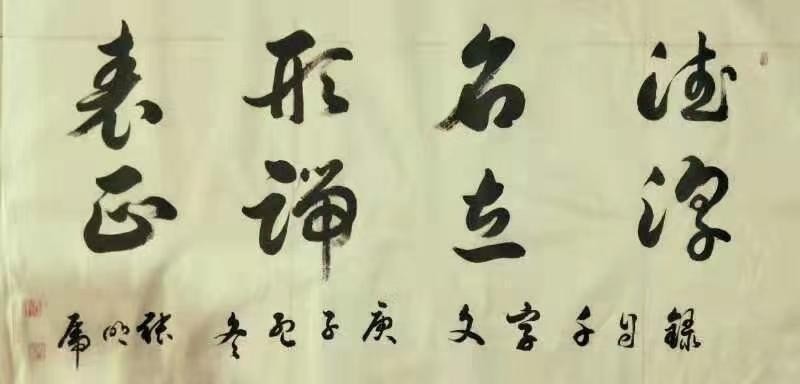 德建
名立
形端
表正
録自千字文 庚子孟冬 張明虎